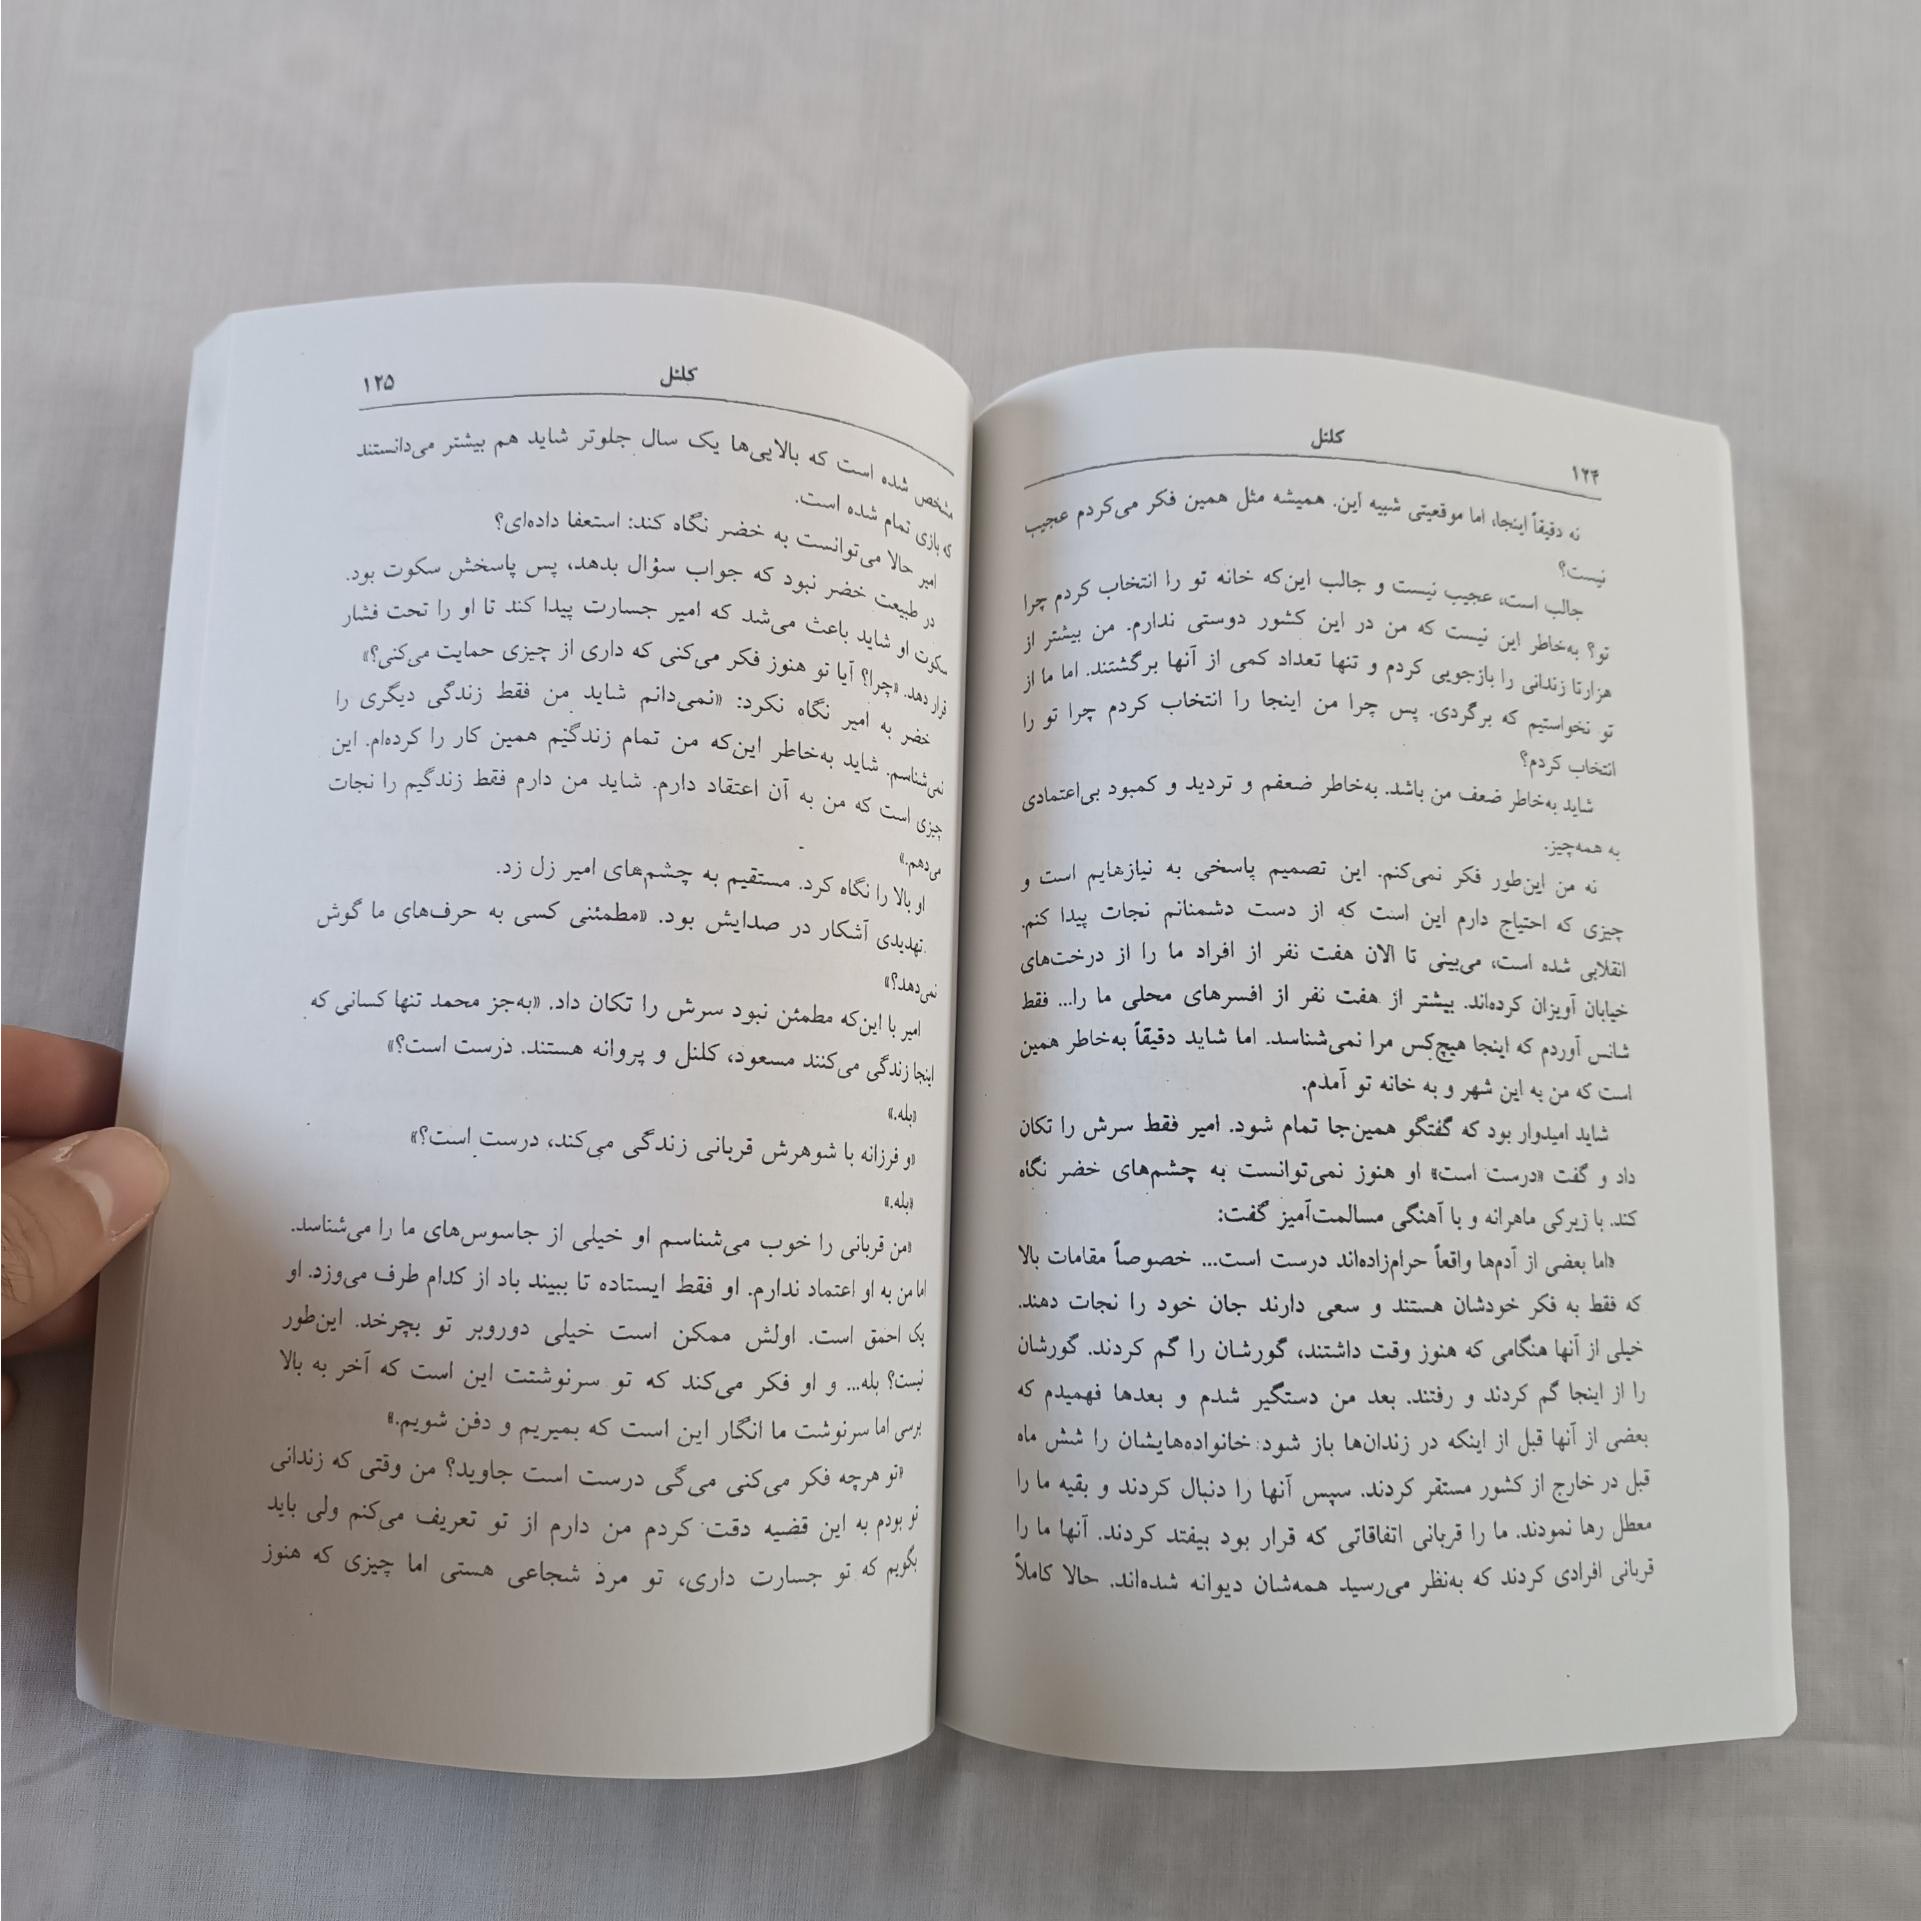 ۱۲۴
کلنل
نه دقیقاً اینجا، اما موقعیتی شبیه این. همیشه مثل همین فکر می‌کردم عجیب
نیست؟
جالب است، عجیب نیست و جالب این‌که خانه تو را انتخاب کردم چرا
تو؟ به‌خاطر این نیست که من در این کشور دوستی ندارم. من بیشتر از
هزارتا زندانی را بازجویی کردم و تنها تعداد کمی از آنها برگشتند. اما ما از
تو نخواستیم که برگردی. پس چرا من اینجا را انتخاب کردم چرا تو را
انتخاب کردم؟
شاید به‌خاطر ضعف من باشد. به‌خاطر ضعفم و تردید و کمبود بی‌اعتمادی
به همه‌چیز.
نه من این‌طور فکر نمی‌کنم. این تصمیم پاسخی به نیازهایم است و
چیزی که احتیاج دارم این است که از دست دشمنانم نجات پیدا کنم.
انقلابی شده است، می‌بینی تا الان هفت نفر از افراد ما را از درخت‌های
خیابان آویزان کرده‌اند. بیشتر از هفت نفر از افسرهای محلی ما را... فقط
شانس آوردم که اینجا هیچ‌کس مرا نمی‌شناسد. اما شاید دقیقاً به‌خاطر همین
است که من به این شهر و به خانه تو آمدم.
شاید امیدوار بود که گفتگو همین‌جا تمام شود. امیر فقط سرش را تکان
داد و گفت «درست است» او هنوز نمی‌توانست به چشم‌های خضر نگاه
کند. با زیرکی ماهرانه و با آهنگی مسالمت‌آمیز گفت:
«اما بعضی از آدم‌ها واقعاً حرام‌زاده‌اند درست است... خصوصاً مقامات بالا
که فقط به فکر خودشان هستند و سعی دارند جان خود را نجات دهند.
خیلی از آنها هنگامی که هنوز وقت داشتند، گورشان را گم کردند. گورشان
را از اینجا گم کردند و رفتند. بعد من دستگیر شدم و بعدها فهمیدم که
بعضی از آنها قبل از اینکه در زندان‌ها باز شود خانواده‌هایشان را شش ماه
قبل در خارج از کشور مستقر کردند. سپس آنها را دنبال کردند و بقیه ما را
معطل رها نمودند. ما را قربانی اتفاقاتی که قرار بود بیفتد کردند. آنها ما را
قربانی افرادی کردند که به‌نظر می‌رسید همه‌شان دیوانه شده‌اند. حالا کاملاً
کلنل
۱۲۵
مشخص شده است که بالایی‌ها یک سال جلوتر شاید هم بیشتر می‌دانستند
که بازی تمام شده است.
امیر حالا می‌توانست به خضر نگاه کند: استعفا داده‌ای؟
در طبیعت خضر نبود که جواب سؤال بدهد، پس پاسخش سکوت بود.
سکوت او شاید باعث می‌شد که امیر جسارت پیدا کند تا او را تحت فشار
قرار دهد. «چرا؟ آیا تو هنوز فکر می‌کنی که داری از چیزی حمایت می‌کنی؟»
خضر به امیر نگاه نکرد: «نمی‌دانم شاید من فقط زندگی دیگری را
نمی‌شناسم. شاید به‌خاطر این‌که من تمام زندگیم همین کار را کرده‌ام. این
چیزی است که من به آن اعتقاد دارم. شاید من دارم فقط زندگیم را نجات
می‌دهم.»
او بالا را نگاه کرد. مستقیم به چشم‌های امیر زل زد.
تهدیدی آشکار در صدایش بود. «مطمئنی کسی به حرف‌های ما گوش
نمی‌دهد؟»
امیر با این‌که مطمئن نبود سرش را تکان داد. «به‌جز محمد تنها کسانی که
اینجا زندگی می‌کنند مسعود، کلنل و پروانه هستند. درست است؟»
«بله.»
«و فرزانه با شوهرش قربانی زندگی می‌کند، درست است؟»
«بله.»
«من قربانی را خوب می‌شناسم او خیلی از جاسوس‌های ما را می‌شناسد.
اما من به او اعتماد ندارم. او فقط ایستاده تا ببیند باد از کدام طرف می‌وزد. او
یک احمق است. اولش ممکن است خیلی دوروبر تو بچرخد. این‌طور
نیست؟ بله... و او فکر می‌کند که تو سرنوشتت این است که آخر به بالا
برسی اما سرنوشت ما انگار این است که بمیریم و دفن شویم.»
«تو هرچه فکر می‌کنی می‌گی درست است جاوید؟ من وقتی که زندانی
تو بودم به این قضیه دقت کردم من دارم از تو تعریف می‌کنم ولی باید
بگویم که تو جسارت داری، تو مرد شجاعی هستی اما چیزی که هنوز